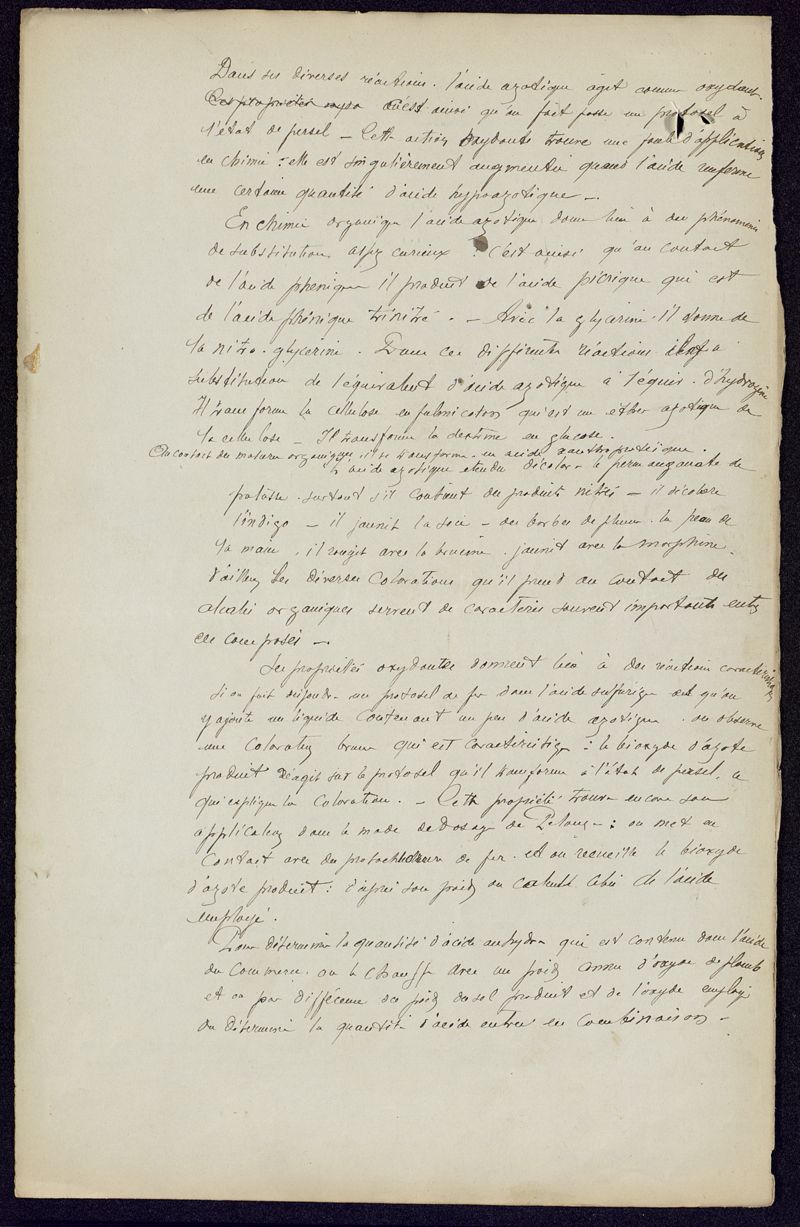 Dans ses diverses réactions. l'acide azotique agit comme oxydant.
Ces propriétés oxyd c'est ainsi qu'on fait passer un protosel à
l'état de persel – Cette action oxydante trouve une foule d'applications
en chimie : elle est singulièrement augmentée quand l'acide renferme
une certaine quantité d'acide hypoazotique –.
En chimie organique l'acide azotique donne lieu à des phénomènes
de substitution assez curieux : c'est ainsi qu'au contact
de l'acide phenique il produit de l'acide picrique qui est
de l'acide phénique trinitré. – Avec la glycerine il donne de
la nitro-glycerine. Dans ces différentes réactions il y a
substitution de l'équivalent d'acide azotique à l'équiv. d'hydrogène
Il transforme la cellulose en fulmicoton qui est un éther azotique de
la cellulose – Il transforme la dextrine en glucose.
Au contact des matières organiques il se transforme en acide xanthoprotéique.
L'acide azotique etendu décolore le permanganate de
potasse surtout s'il contient des produits nitrés – il décolore
l'indigo – il jaunit la soie – des barbes de plume. la peau de
la main, il rougit avec la brucine. jaunit avec la morphine.
d'ailleurs les diverses colorations qu'il prend au contact des
alcalis organiques servent de caractères souvent importants entre
ces composés –
Ses propriétés oxydantes donnent lieu à des réactions caractéristiques
si on fait dissoudre un protosel de fer dans l'acide sulfurique et qu'on
y ajoute un liquide contenant un peu d'acide azotique. on observe
une coloration brune qui est caractéristique : le bioxyde d'azote
produit réagit sur le protosel qu'il transforme à l'état de persel, ce
qui explique la coloration. – Cette propriété trouve encore son
application dans le mode de dosage de Pelouze : on met en
contact avec du protochlorure de fer et on recueille le bioxyde
d'azote produit : d'après son poids on calcule celui de l'acide
employé.
Pour déterminer la quantité d'acide anhydre qui est contenu dans l'acide
du commerce. on le chauffe avec un poids connu d'oxyde de plomb
et on par différence du poids du sel produit et de l'oxyde employé
on détermine la quantité d'acide entrée en combinaison –